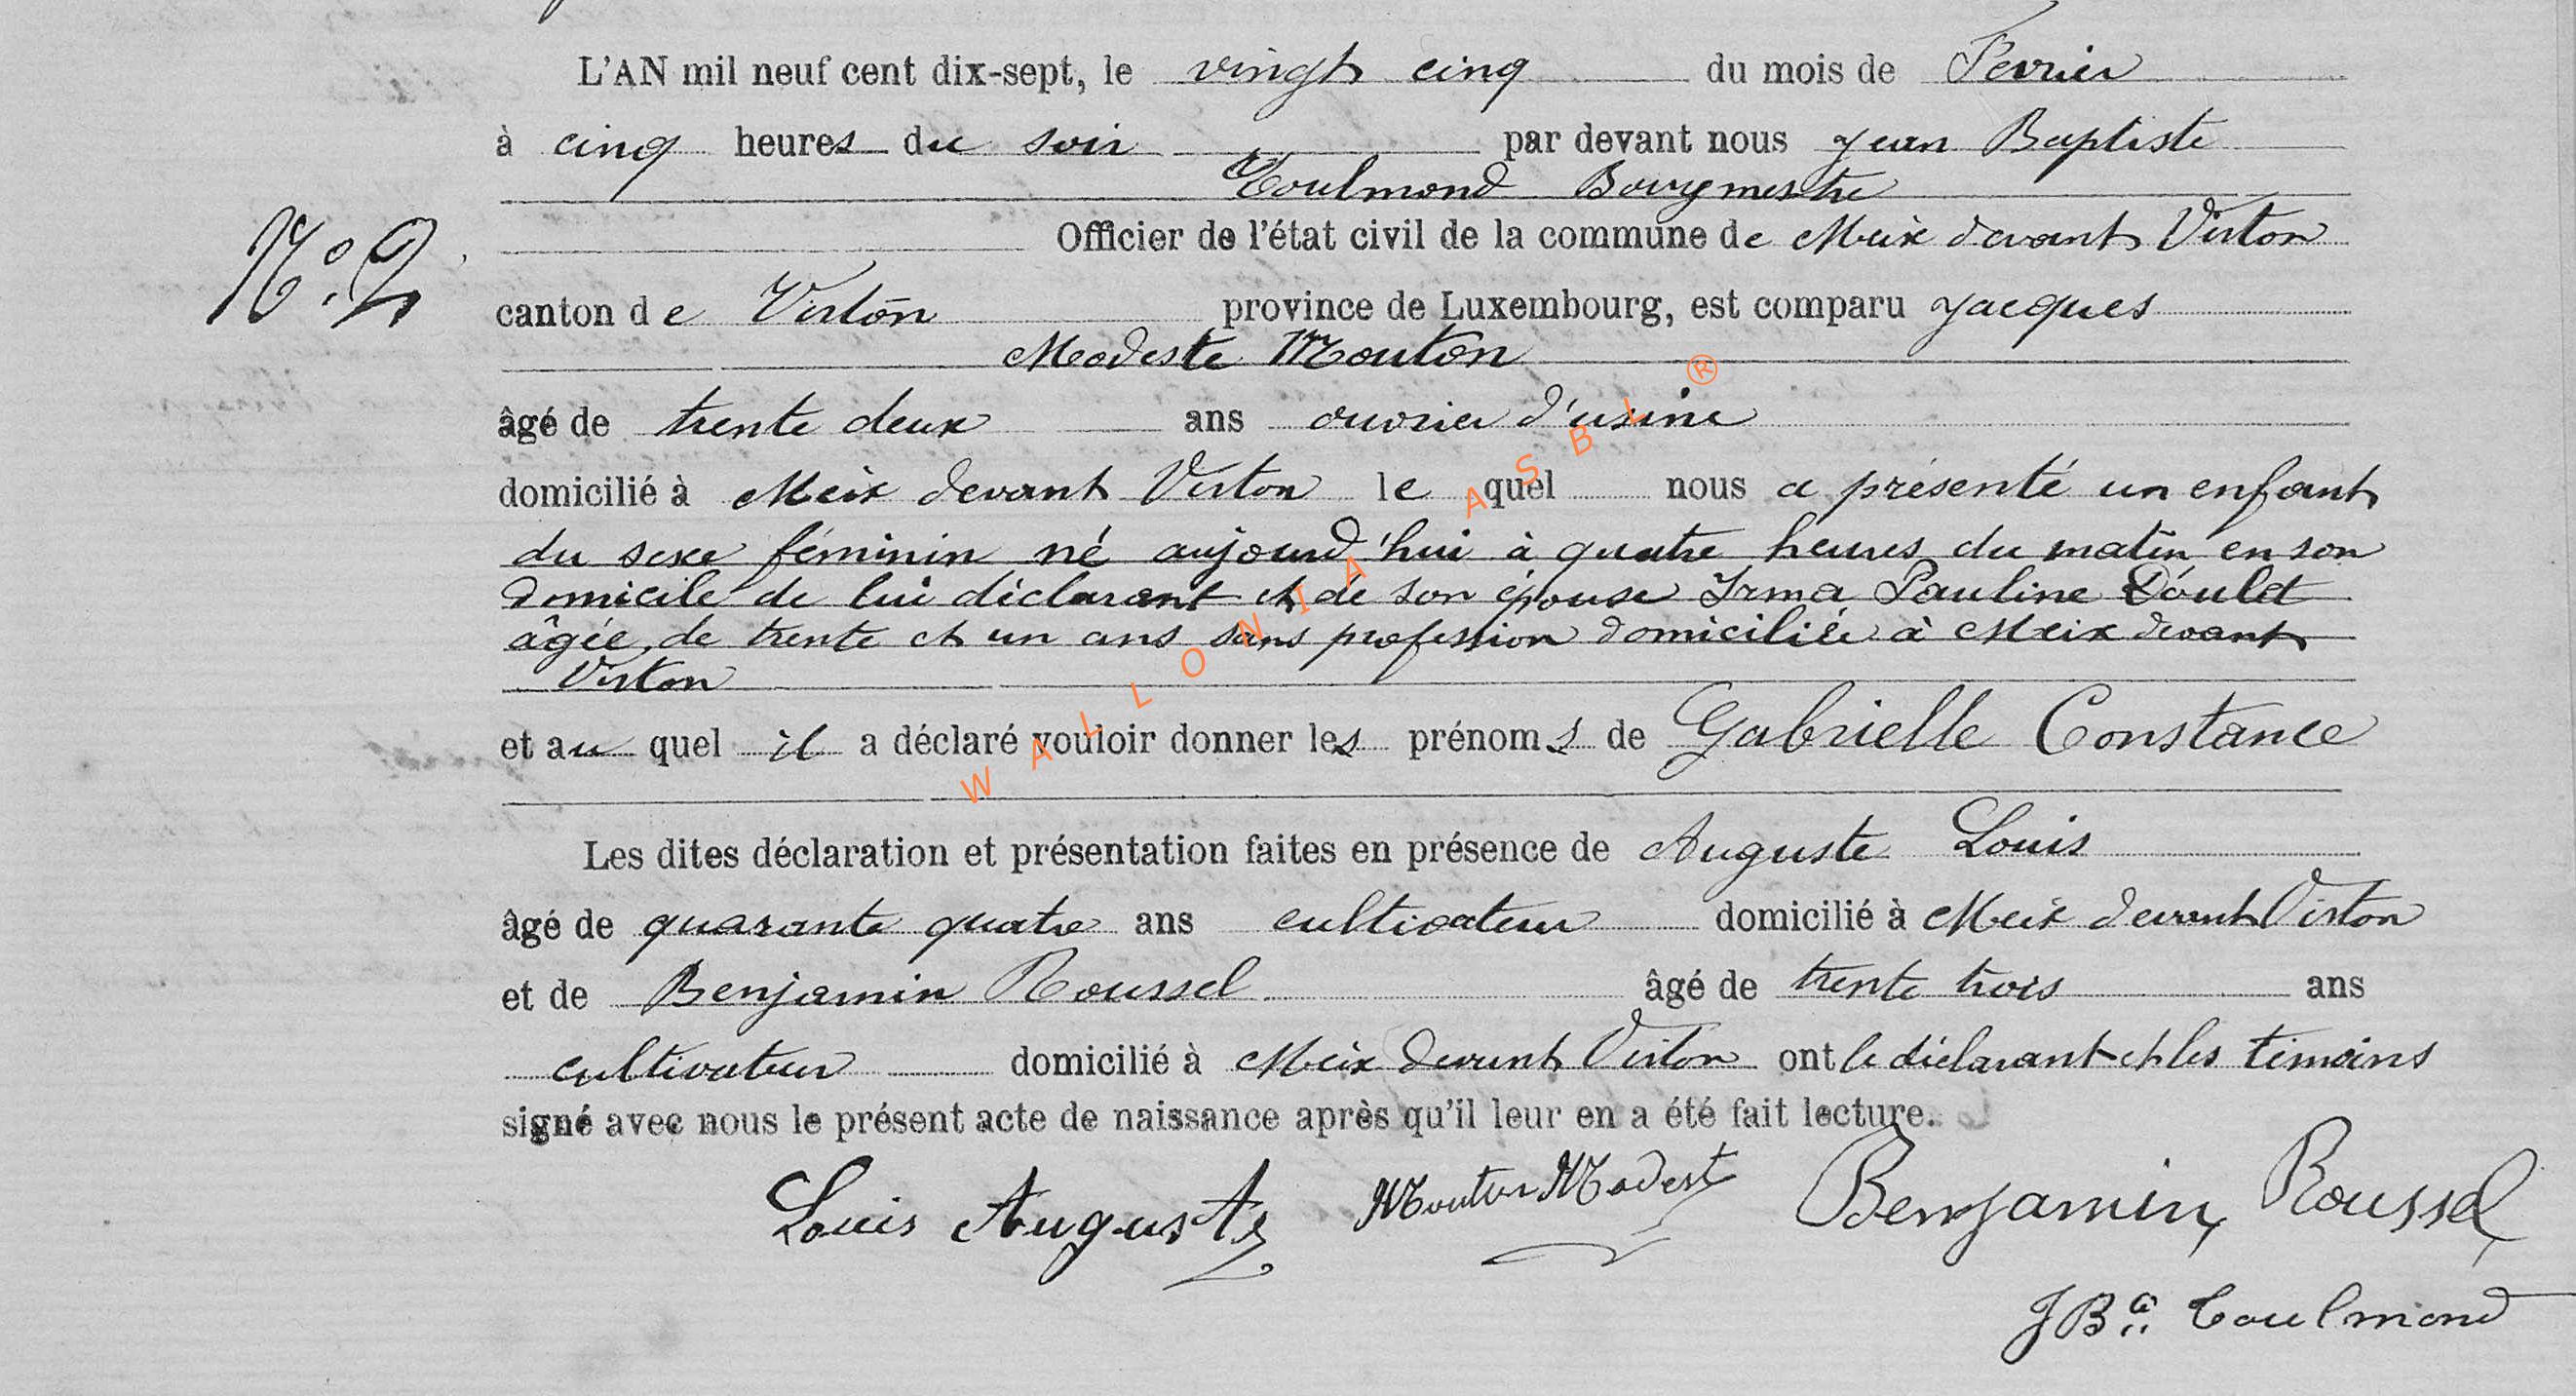 L'AN mil neuf cent dix-sept, le vingt cinq du mois de Fevrier
à cinq heures du soir par devant nous Jean Baptiste
Toulmond Bourgmestre
Officier de l'état civil de la commune de Meix devant Virton
N°. 2
canton de Virton province de Luxembourg, est comparu Jacques
Modeste Mouton
âgé de trente deux ans ouvrier d'usine
domicilié à Meix devant Virton le quel nous a présenté un enfant
du sexe féminin né aujourd'hui à quatre heures du matin en son
domicile de lui déclarant et de son épouse Irma Pauline
âgée de trente et un ans sans profession domiciliée à Meix devant
Virton
et au quel il a déclaré vouloir donner les prénoms de Gabrielle Constance
Les dites déclaration et présentation faites en présence de Auguste Louis
âgé de quarante quatre ans cultivateur domicilié à Meix devant Virton
et de Benjamin Roussel âgé de trente trois ans
cultivateur domicilié à Meix devant Virton ont le déclarant et les témoins
signé avec nous le présent acte de naissance après qu'il leur en a été fait lecture.
Louis Auguste Mouton Modest Benjamin Roussel
JBte Toulmond
WALLONIA ASBL ®